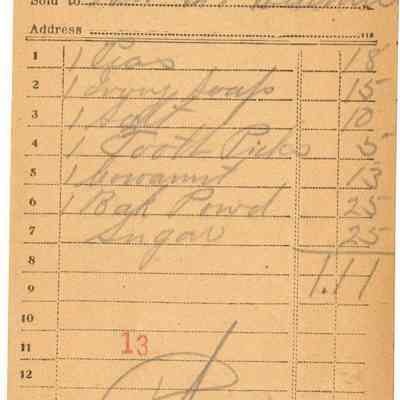 Sold to
Address
1 1 Peas 18
2 1 Ivory Soap 15
3 1 Salt 10
4 1 Tooth Picks 5
5 1 13
6 1 Bak Powd 25
7 Sugar 25
8 1.11
9
10
11 13
12